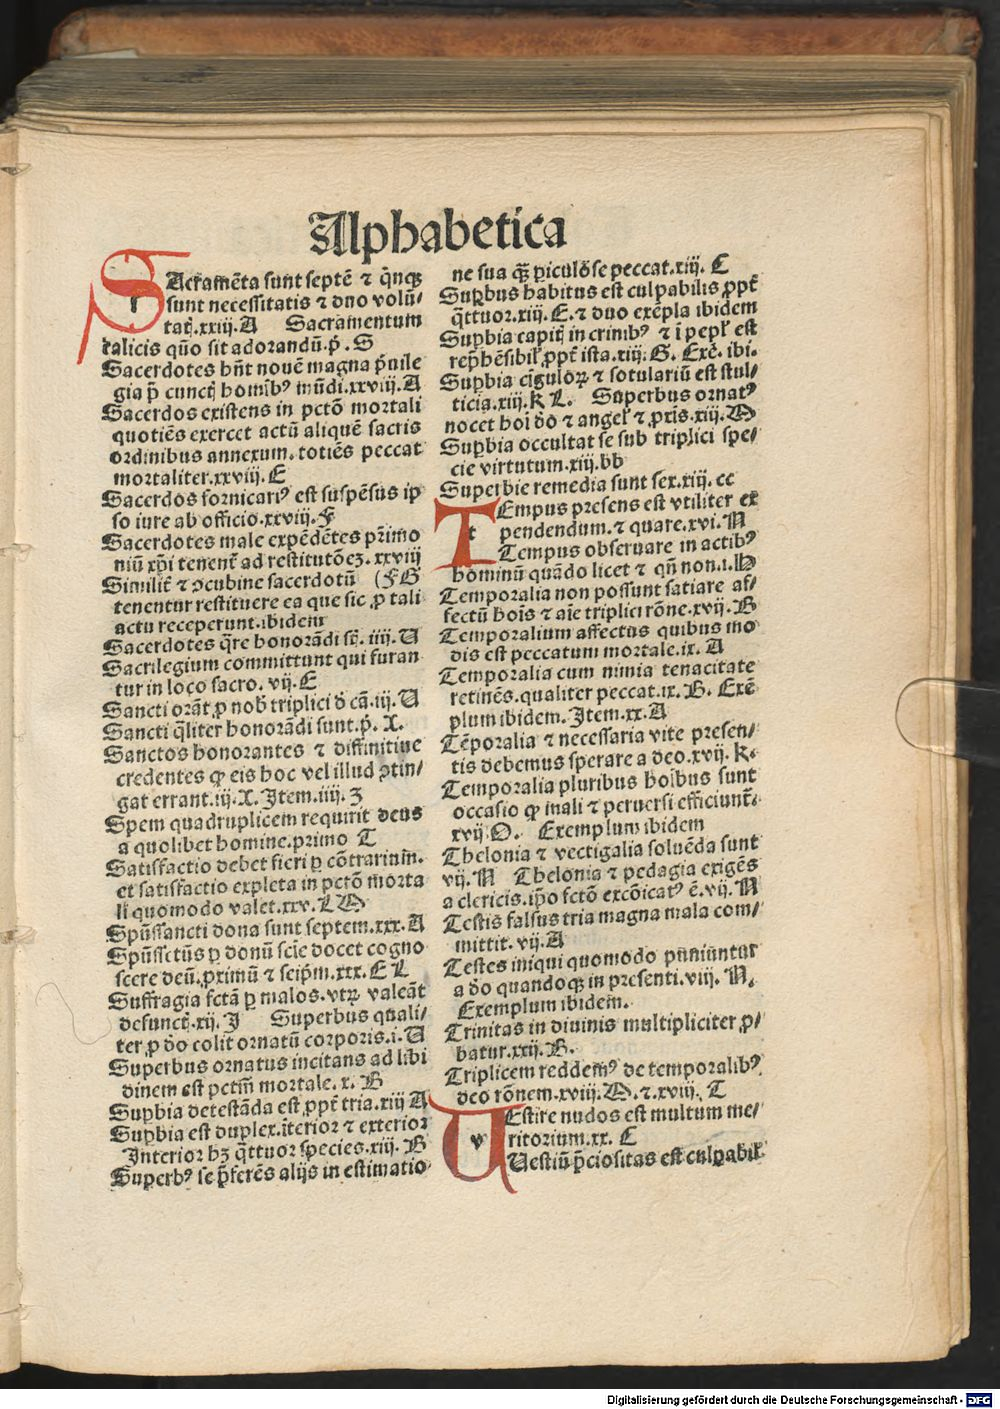 Alphabetica
SAcramēta sunt septē ⁊ q̄nqꝫ
sunt necessitatis ⁊ duo volū/
tatꝭ.xxiij.A Sacramentum
calicis quō sit adorandū.p̄.S
Sacerdotes hn̄t nouē magna p̄uile
gia p̄ cunctꝭ homībꝰ mūdi.xxviij.A
Sacerdos existens in pctō mortali
quotiēs exercet actū aliquē sacris
ordinibus annexum.totiēs peccat
mortaliter.xxviij.E
Sacerdos fornicariꝰ est suspēsus ip
so iure ab officio.xxviij.F
Sacerdotes male expēdētes pr̄imo
niū xp̄i tenent̄ ad restitutōeꝫ.xxviij
Similit̄ ⁊ ꝯcubine sacerdotū (F G
tenentur restituere ea que sic ꝓ tali
actu receperunt.ibidem
Sacerdotes q̄re honorādi st̄.iiij.U
Sacrilegium committunt qui furan
tur in loco sacro.vij.E
Sancti orāt ꝓ nob̄ triplici d̄ cā.iij.U
Sancti q̄liter honorādi sunt.p̄.X.
Sanctos honorantes ⁊ diffinitiue
credentes ꝙ eis hoc vel illud ꝯtin/
gat errant.iij.X.Item.iiij.Z
Spem quadruplicem requirit deus
a quolibet homine.primo T
Satisfactio debet fieri ꝑ cōtrarium̄.
et satisfactio expleta in pctō morta
li quomodo valet.xxv.L M
Spūssancti dona sunt septem.xxx.A
Spūssctūs ꝑ donū scīe docet cogno
scere deū.ꝓximū ⁊ seip̄m.xxx.E L
Suffragia fctā ꝑ malos.vtꝝ valeāt
defunct̄.xij.I Superbus quali/
ter ꝓ dō colit ornatū corporis.i.U
Superbus ornatus incitans ad libi
dinem est pctm̄ mortale.x.B
Suꝑbia detestāda est ꝓpt̄ tria.xiij A
Suꝑbia est duplex.īterior ⁊ exterior
Interior hꝫ q̄ttuor species.xiij.B
Suꝑbꝰ se p̄ferēs alijs in estimatio
ne sua qꝫ̄ ꝑiculōse peccat.xiij.C
Suꝑbus habitus est culpabilis ꝓpt̄
q̄ttuor.xiij.E.⁊ duo exēpla ibidem
Suꝑbia capitꝭ in crinibꝰ ⁊ ī pepl̄ est
rep̄hēsibil̄ ꝓpt̄ ista.xiij.G. Exē.ibi.
Suꝑbia cīguloꝝ ⁊ sotulariū est stul/
ticia.xiij.K L. Superbus ornatꝰ
nocet hoī dō ⁊ angel̄ ⁊ ꝓxīs.xiij.M
Suꝑbia occultat se sub triplici spe/
cie virtutum.xiij.bb
Superbie remedia sunt sex.xiij.cc
TEmpus presens est vtiliter ex
pendendum.⁊ quare.xvi.N
Tempus obseruare in actibꝰ
hominū quādo licet ⁊ qn̄ non.i.H
Temporalia non possunt satiare af/
fectū hoīs ⁊ aīe triplici rōne.xvij.B
Temporalium affectus quibus mo
dis est peccatum mortale.ix.A
Temporalia cum nimia tenacitate
retinēs.qualiter peccat.ix.B. Exē
plum ibidem.Item.xx.A
Tēporalia ⁊ necessaria vite presen/
tis debemus sperare a deo.xvij.K.
Temporalia pluribus hoībus sunt
occasio ꝙ mali ⁊ peruersi efficiunt̄.
xvij.O. Exemplum ibidem
Thelonia ⁊ vectigalia soluēda sunt
vij.N Thelonia ⁊ pedagia exigēs
a clericis.ip̄o fctō excōicatꝰ ē.vij.N
Testis falsus tria magna mala com/
mittit.vij.A
Testes iniqui quomodo puniūntur
a dō quandoqꝫ in presenti.viij.N.
Exemplum ibidem.
Trinitas in diuinis multipliciter ꝓ/
batur.xxij.B.
Triplicem reddemꝰ de temporalibꝰ
deo rōnem.xviij.M.⁊.xviij.T
UEstire nudos est multum me/
ritorium.xx.C
Uestiū p̄ciositas est culpabil̄
Digitalisierung gefördert durch die Deutsche Forschungsgemeinschaft - DFG